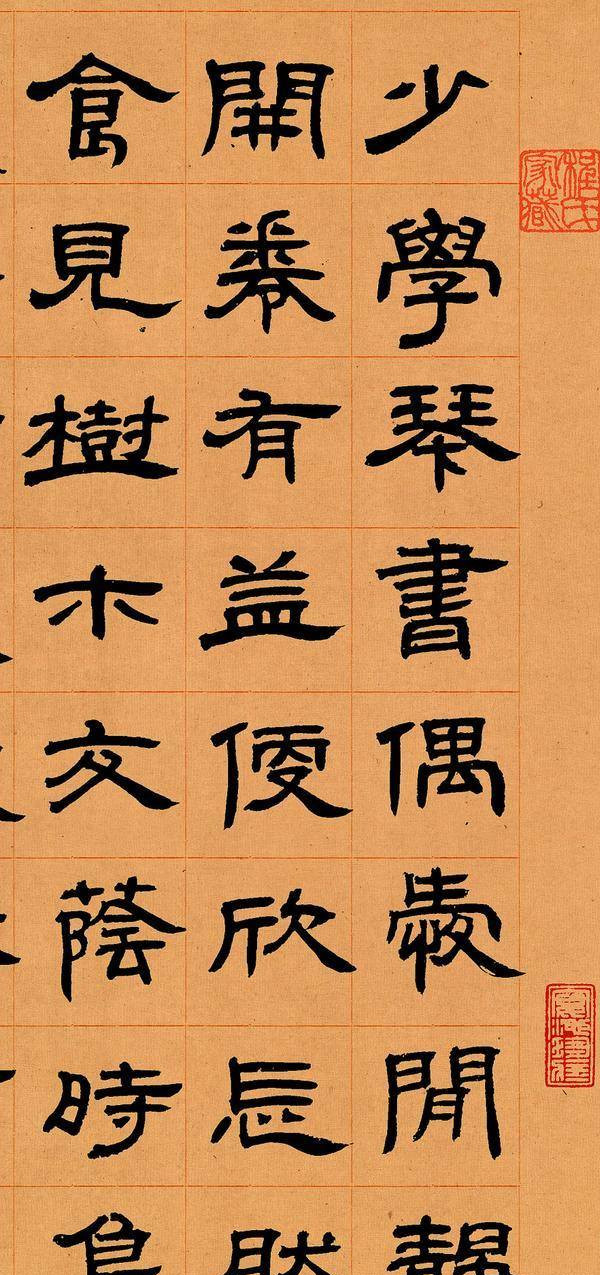 少學琴書偶愛閒靜
開卷有益便欣忘
食見樹木交蔭時鳥